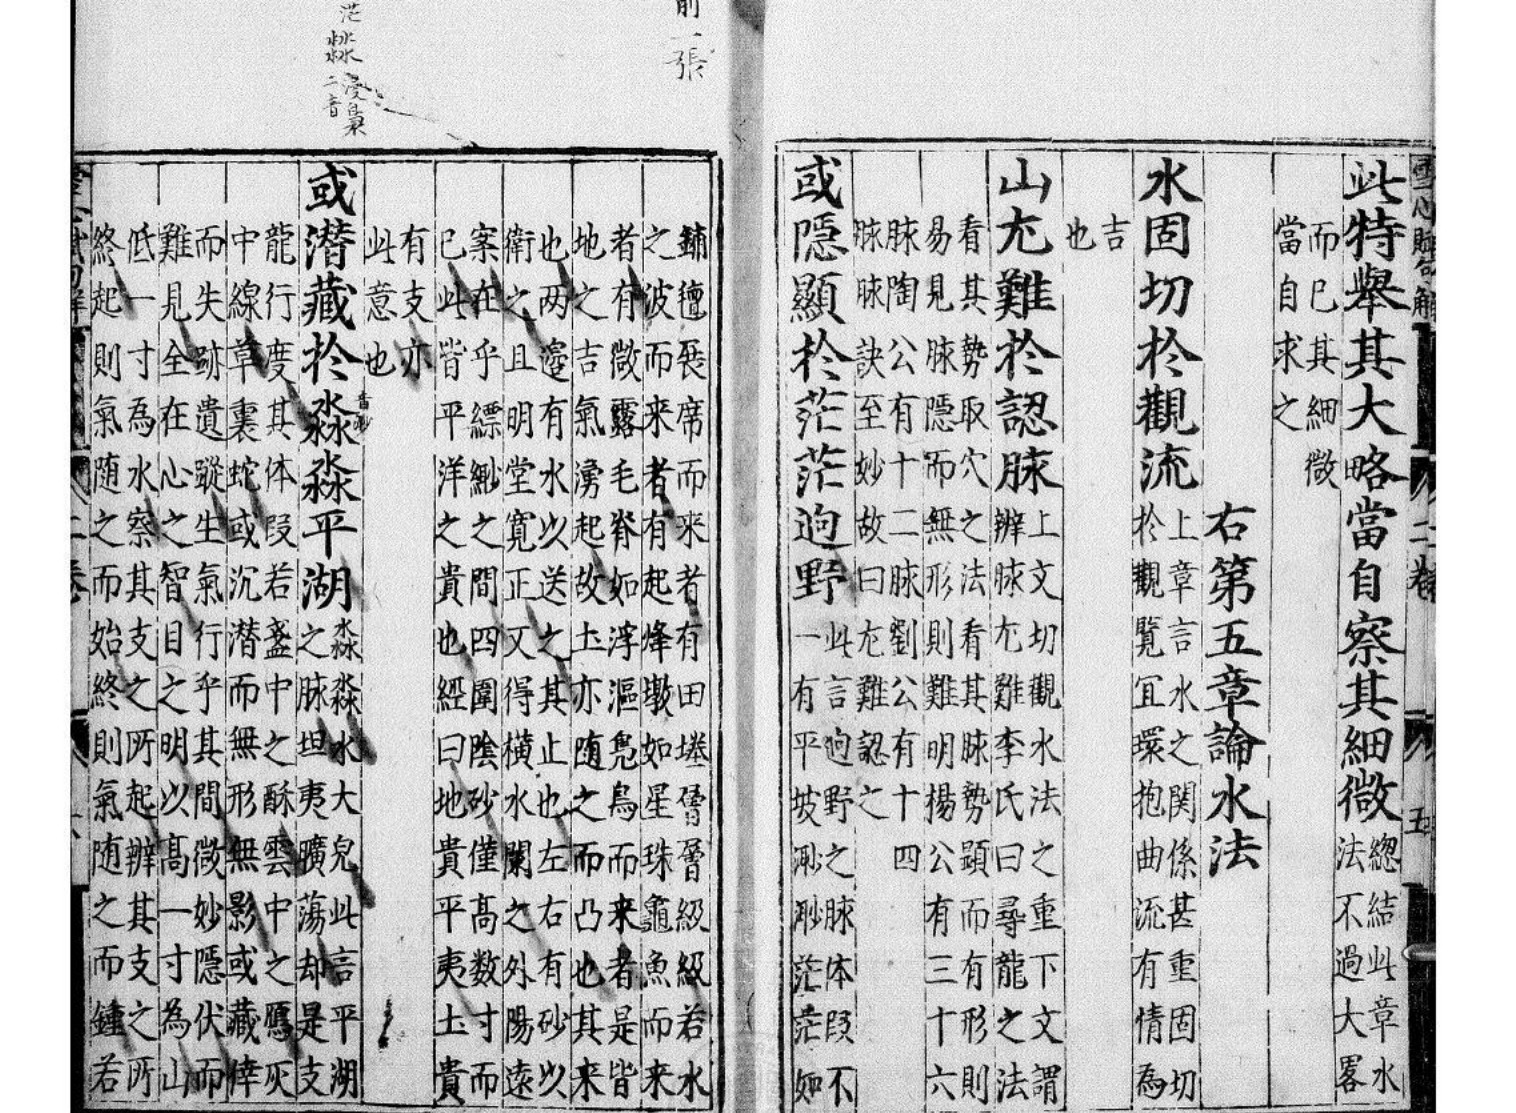 此特舉其大略當自察其細微
總結此章水
法不過大畧
而已其細微
當自求之
右第五章論水法
水固切於觀流
上章言水之関係甚重固切
於觀覽冝環抱曲流有情為
吉
也
山尤難於認脉
上文切觀水法之重下文謂
辨脉尤難李氏曰尋龍之法
看其勢取穴之法看其脉勢顯而有形則
易見脉隱而無形則難明楊公有三十六
脉陶公有十二脉劉公有十四
脉脉訣至妙故曰尤難認之
或隱顯於茫茫逈野
此言逈野之脉体段不
一有平坡渺渺茫茫如
鋪氊展席而来者有田塍層層級級若水
之波而来者有起烽墩如星珠龜魚而来
者有微露毛脊如浮漚鳧鳥而来者是皆
地之吉氣湧起故土亦随之而凸也其来
也两邉有水以送之其止也左右有砂以
衛之且明堂寬正又得橫水闌之外陽遠
案在乎縹緲之間四圍陰砂僅高数寸而
已此皆平洋之貴也經曰地貴平夷土貴
有支亦
此意也
或潜藏於淼淼平湖
音眇
淼淼水大皃此言平湖
之脉坦夷曠蕩却是支
龍行度其体段若盞中之酥雲中之鴈灰
中線草裏蛇或沉潜而無形無影或藏倖
而失跡遺蹤生氣行乎其間微妙隱伏而
難見全在心之智目之明以高一寸為山
低一寸為水察其支之所起辨其支之所
終起則氣随之而始終則氣随之而鍾若
前一張
茫
淼
二音
雪心賦句解
二卷
五